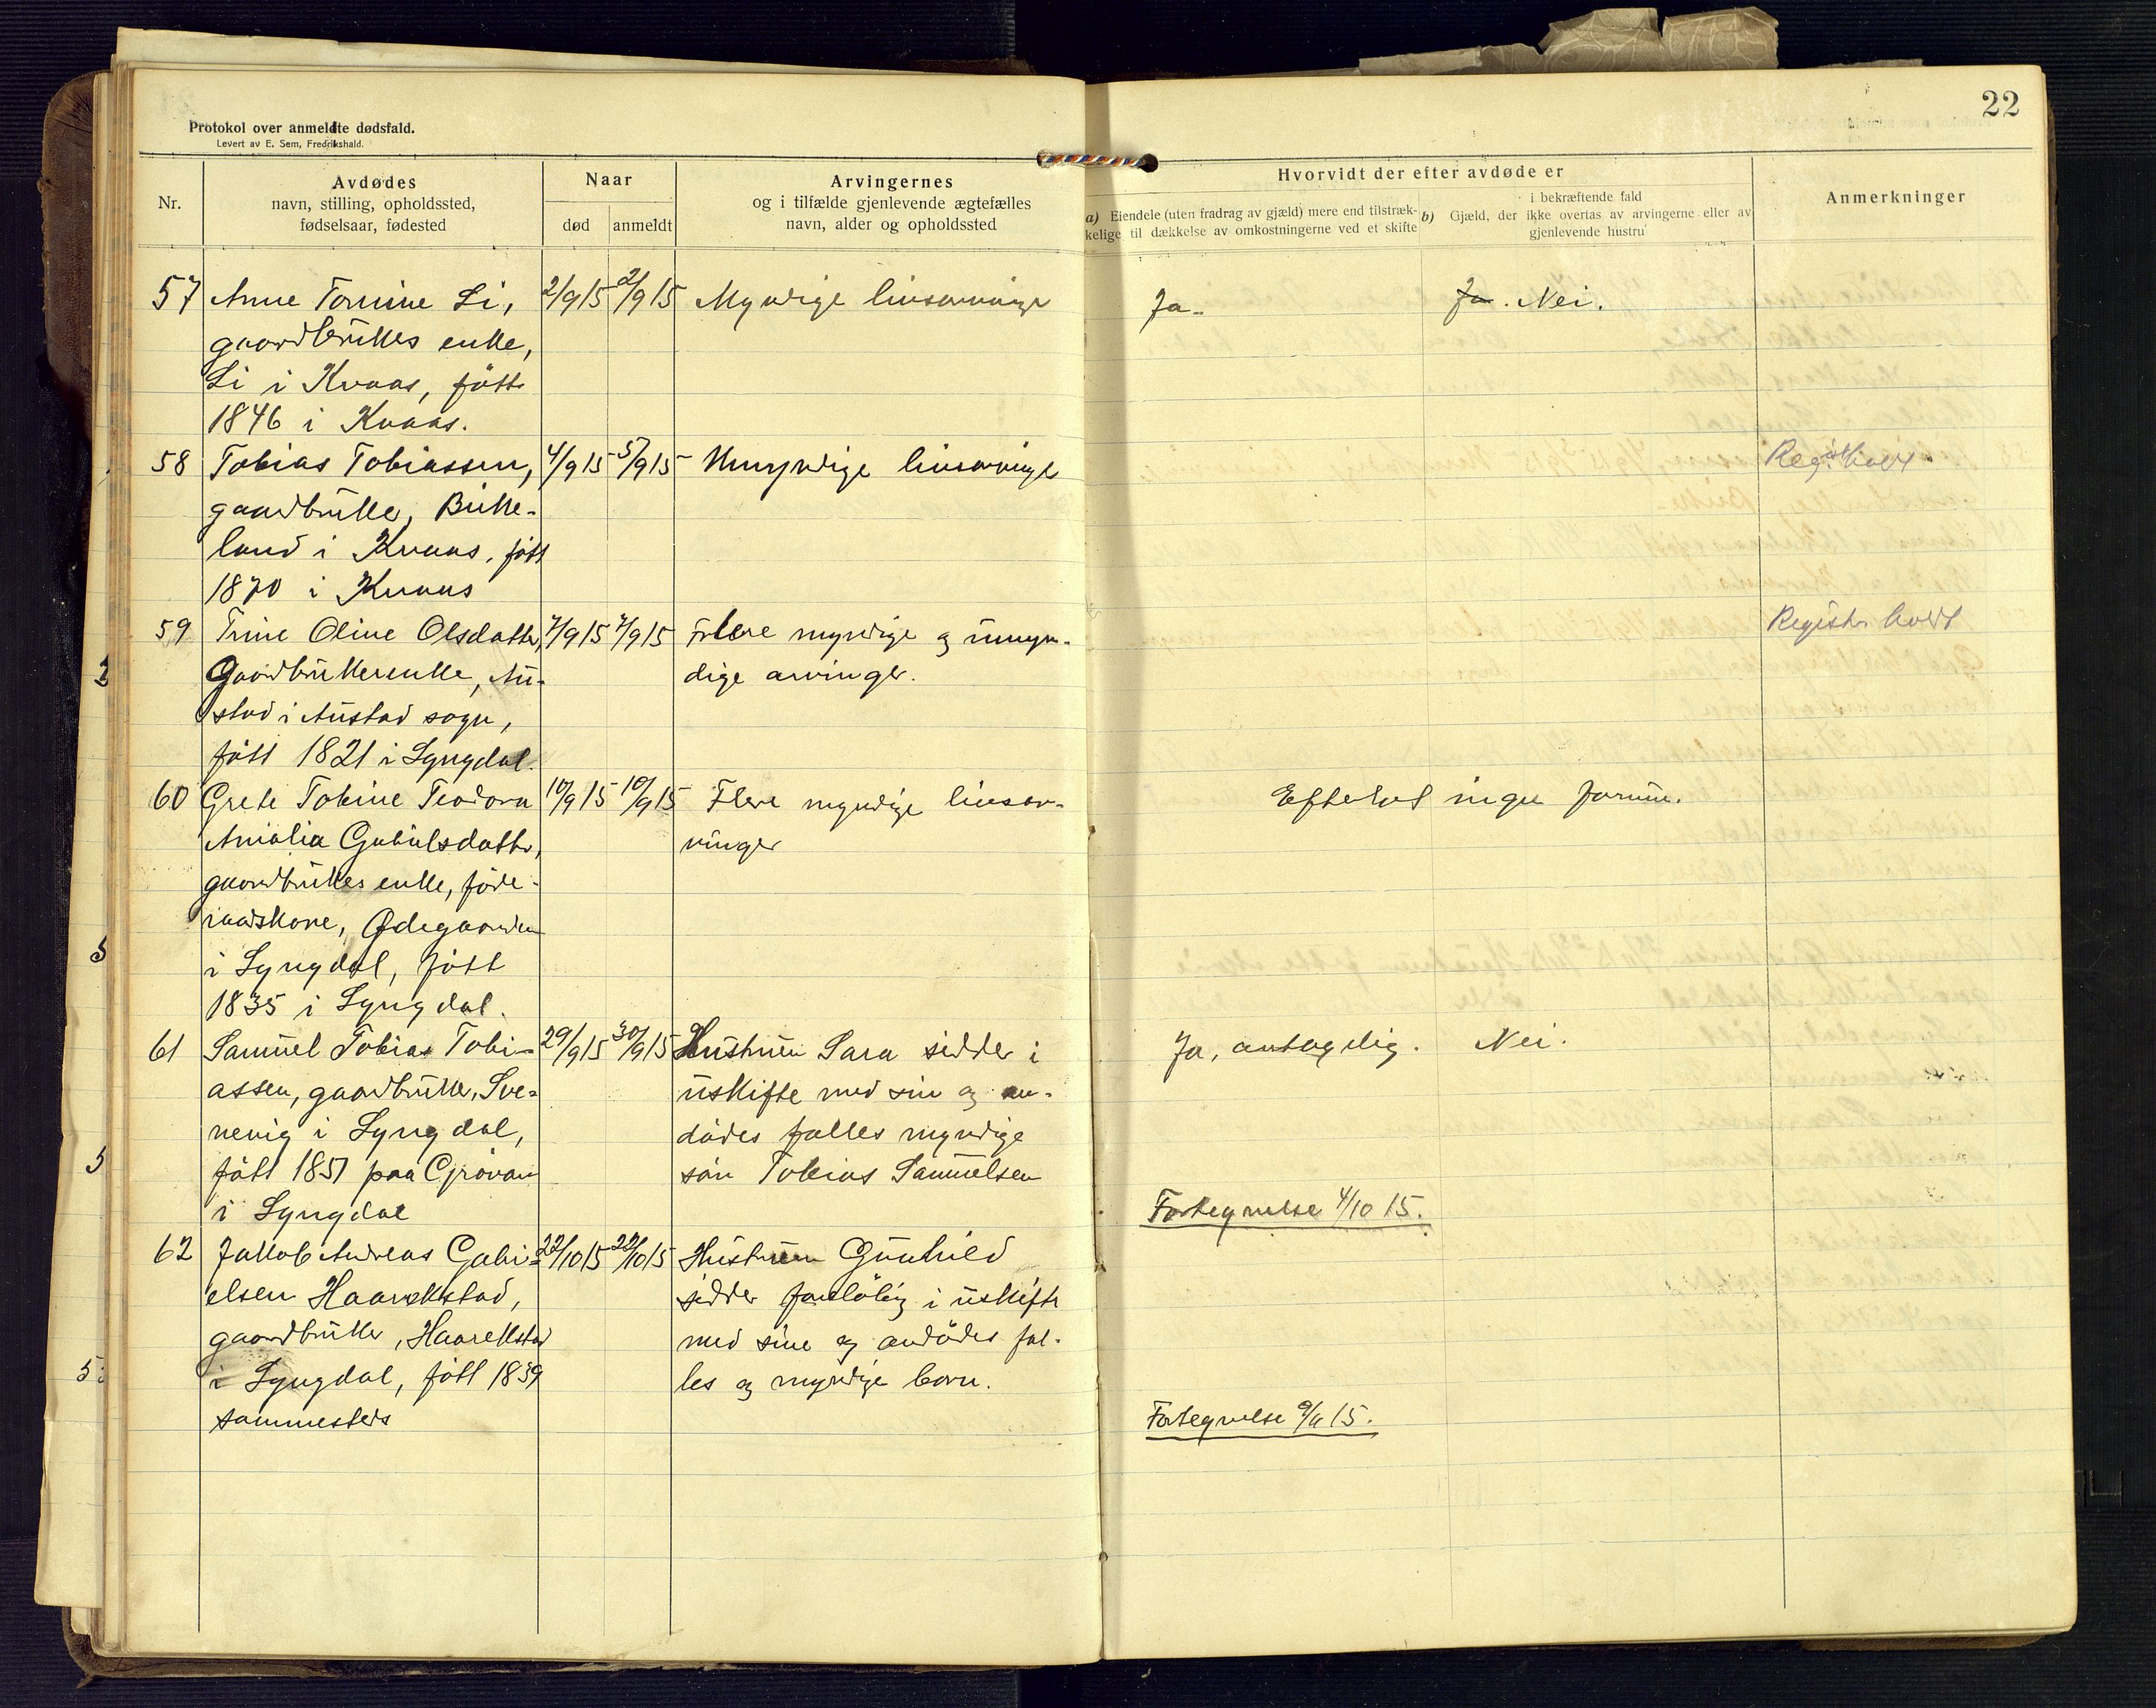 22
Protokol over anmeldte dødsfald.
Levert av E. Sem, Fredrikshald.
Nr.
Avdødes
navn, stilling, opholdssted,
fødselsaar, fødested
Naar
død
anmeldt
Arvingernes
og i tilfælde gjenlevende ægtefælles
navn, alder og opholdssted
Hvorvidt der efter avdøde er
a) Eiendele (uten fradrag av gjæld) mere end tilstræk-
kelige til dækkelse av omkostningerne ved et skifte
i bekræftende fald
b) Gjæld, der ikke overtas av arvingerne eller av
gjenlevende hustru
Anmerkninger
57 Anne Tomine Li, 2/9 15 2/9 15 Myndige livsarvinger Ja. Ja. Nei.
gaardbrukers enke,
Li i Kvaas, født
1846 i Kvaas.
58 Tobias Tobiassen, 4/9 15 5/9 15 Umyndige livsarvinger
gaardbruker, Birke-
land i Kvaas, født
1870 i Kvaas
59 Trine Oline Olsdatter, 7/9 15 7/9 15 Flere myndige og umyn- Registr. holdt
Gaardbrukerenke, Au-
stad i Austad sogn,
født 1821 i Lyngdal.
dige arvinger.
60 Grete Tobine Teodora 10/9 15 10/9 15 Flere myndige livsar- Efterlot ingen formue.
Amalia Gabrielsdatter,
gaardbrukers enke, føde-
raadskone, Ødegaarden
i Lyngdal, født
1835 i Lyngdal.
vinger
61 Samuel Tobias Tobi- 29/9 15 30/9 15 Hustruen Sara sidder i Ja, antagelig. Nei.
assen, gaardbruker, Sve-
nevig i Lyngdal,
født 1857 paa Grøvan
i Lyngdal
uskifte med sin og av-
dødes fælles myndige
søn Tobias Samuelsen
Fortegnelse 4/10 15.
62 Jakob Andreas Gabri- 22/10 15 22/10 15 Hustruen Gunhild
elsen Haarekstad,
gaardbruker, Haarekstad
i Lyngdal, født 1839
sammesteds
sidder foreløbig i uskifte
med sine og avdødes fæl-
les og myndige børn.
Fortegnelse 9/11 15.